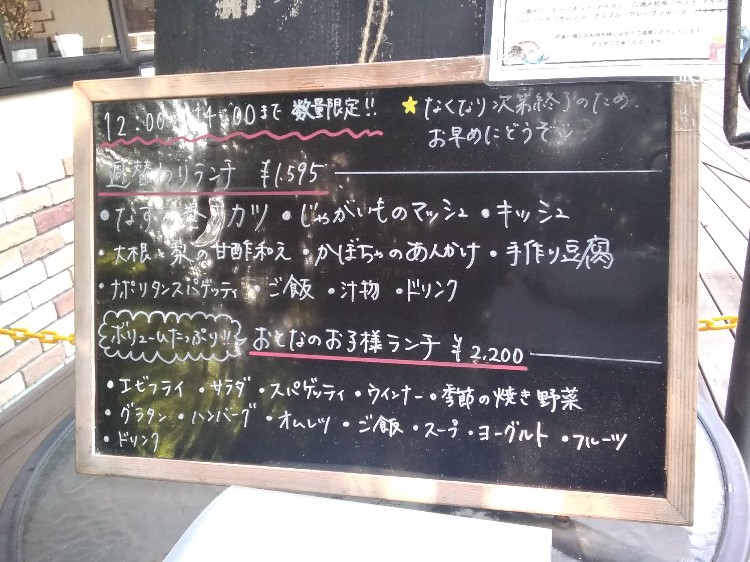 12:00 14:00まで 数量限定!!
★なくなり次第終了のため、
お早めにどうぞ
週替わりランチ ¥1,595
・なす カツ ・じゃがいものマッシュ ・キッシュ
・大根と梨の甘酢和え ・かぼちゃのあんかけ ・手作り豆腐
・ナポリタンスパゲッティ ・ご飯 ・汁物 ・ドリンク
ボリュームたっぷり!! おとなのお子様ランチ ¥2,200
・エビフライ ・サラダ ・スパゲッティ ・ウインナー ・季節の焼き野菜
・グラタン ・ハンバーグ ・オムレツ ・ご飯 ・スープ ・ヨーグルト ・フルーツ
・ドリンク